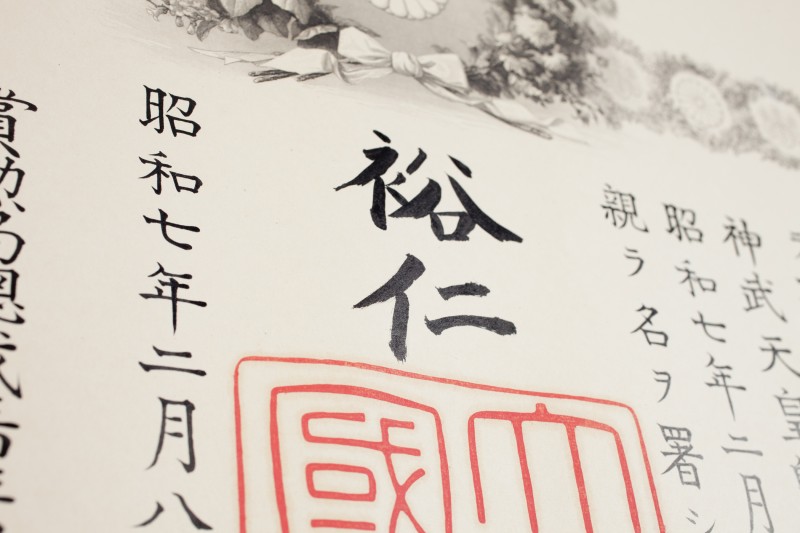 神武天皇
昭和七年二月
親ラ名ヲ署シ
裕仁
大
國
昭和七年二月八
賞勲局總裁